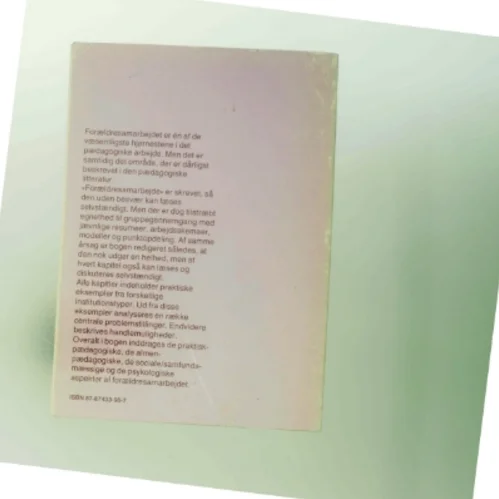 Forældresamarbejdet er én af de
væsentligste hjørnestene i det
pædagogiske arbejde. Men det er
samtidig det område, der er dårligst
beskrevet i den pædagogiske
litteratur.
»Forældresamarbejde« er skrevet, så
den uden besvær kan læses
selvstændigt. Men der er dog tilstræbt
egnethed til gruppegennemgang med
jævnlige resumeer, arbejdsskemaer,
modeller og punktopdeling. Af samme
årsag er bogen redigeret således, at
den nok udgør en helhed, men at
hvert kapitel også kan læses og
diskuteres selvstændigt.
Alle kapitler indeholder praktiske
eksempler fra forskellige
institutionstyper. Ud fra disse
eksempler analyseres en række
centrale problemstillinger. Endvidere
beskrives handlemuligheder.
Overalt i bogen inddrages de praktisk-
pædagogiske, de almen-
pædagogiske, de sociale/samfunds-
mæssige og de psykologiske
aspekter af forældresamarbejdet.
ISBN